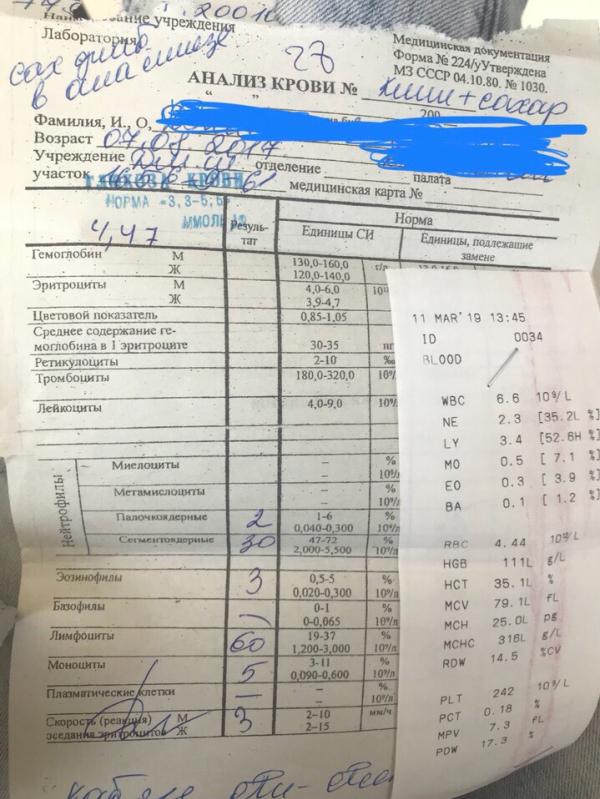 200
Наименование учреждения
Лаборатория
сах диаб
в анамнезе
28
Медицинская документация
Форма № 224/у Утверждена
МЗ СССР 04.10.80. № 1030.
АНАЛИЗ КРОВИ №
клин + сахар
"        "        200
Фамилия, И., О,
Возраст 07.08.2017
Учреждение
отделение
палата
участок
медицинская карта №
ГЛЮКОЗА КРОВИ
НОРМА =3,3-5,5
ММОЛЬ/Л
4,47
Результат
Норма
Единицы СИ
Единицы, подлежащие замене
Гемоглобин М 130,0-160,0 г/л
Ж 120,0-140,0
Эритроциты М 4,0-6,0
Ж 3,9-4,7
Цветовой показатель 0,85-1,05
Среднее содержание ге-
моглобина в 1 эритроците 30-35 пг
Ретикулоциты 2-10 ‰
Тромбоциты 180,0-320,0 10⁹/
Лейкоциты 4,0-9,0 10⁹/
Нейтрофилы
Миелоциты – %
– 10⁹/
Метамиелоциты – %
– 10⁹/
Палочкоядерные 2 1-6 %
0,040-0,300 10⁹/л
Сегментоядерные 30 47-72 %
2,000-5,500 10⁹/л
Эозинофилы 3 0,5-5 %
0,020-0,300 10⁹/л
Базофилы – 0-1 %
0-0,065 10⁹/л
Лимфоциты 60 19-37 %
1,200-3,000 10⁹/л
Моноциты 5 3-11 %
0,090-0,600 10⁹/л
Плазматические клетки – – %
– 10⁹/л
Скорость (реакция) М 3 2-10 мм/ч
оседания эритроцитов Ж 2-15
11 MAR'19 13:45
ID 0034
BLOOD
WBC 6.6 10⁹/L
NE 2.3 [35.2L %]
LY 3.4 [52.6H %]
MO 0.5 [ 7.1 %]
EO 0.3 [ 3.9 %]
BA 0.1 [ 1.2 %]
RBC 4.44 10¹²/L
HGB 111L g/L
HCT 35.1L %
MCV 79.1L fL
MCH 25.0L pg
MCHC 316L g/L
RDW 14.5 %CV
PLT 242 10⁹/L
PCT 0.18 %
MPV 7.3 fL
PDW 17.3 %